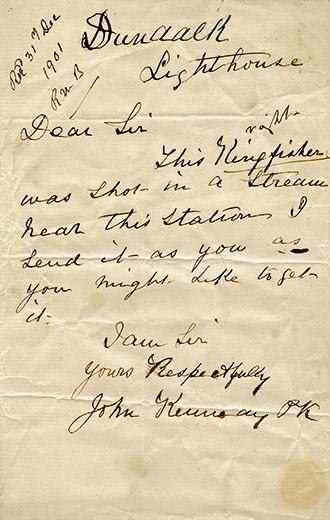 Dundalk
Lighthouse
31st Dec
1901
R M B
Dear Sir
This Kingfisher
was shot in a Stream
near this Station I
send it as you as
you might Like to get
it.
I am Sir
yours Respectfully
John Kennedy PK